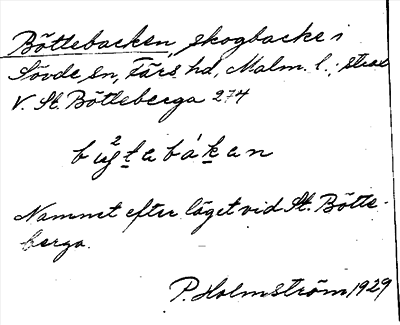 Böttebacken, skogbacke i
Sövde sn, Färs hd, Malm. l.; strax
V. St. Bötteberga 274
Namnet efter läget vid St. Bötte-
berga.
P. Holmström 1929